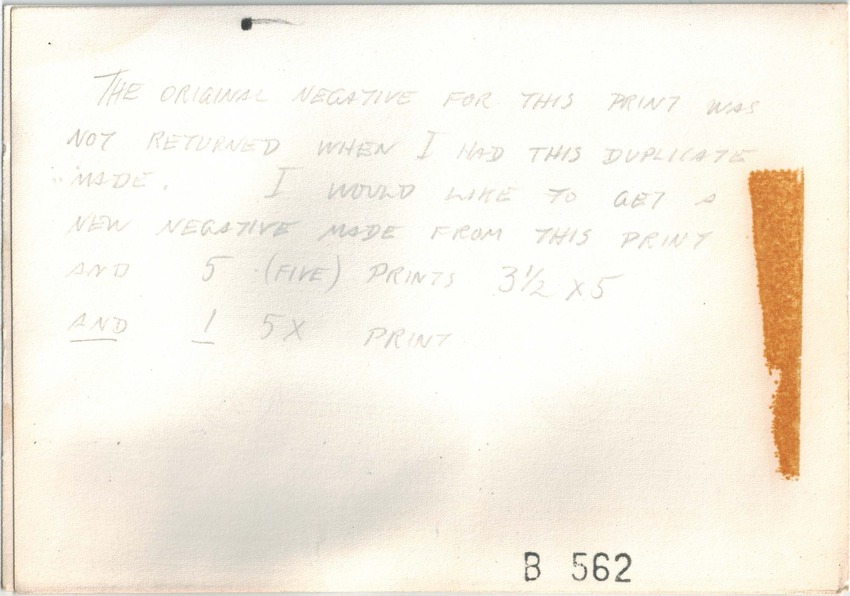 THE ORIGINAL NEGATIVE FOR THIS PRINT WAS
NOT RETURNED WHEN I HAD THIS DUPLICATE
MADE. I WOULD LIKE TO GET A
NEW NEGATIVE MADE FROM THIS PRINT
AND 5 (FIVE) PRINTS 3½ X 5
AND 1 5X PRINT
B 562